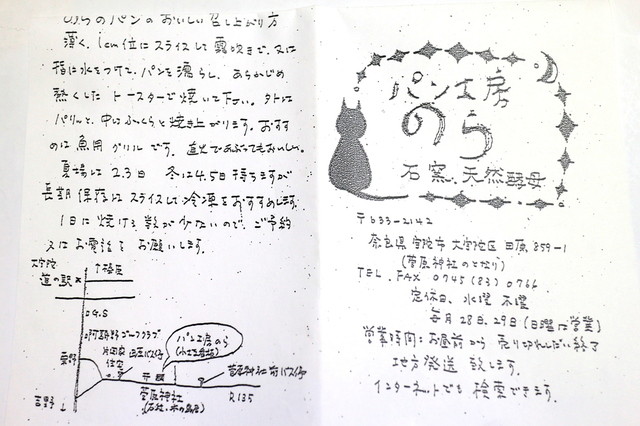 のらのパンのおいしい召し上がり方
薄く、1cm位にスライスして霧吹きで、又は
指に水をつけて、パンを濡らし、あらかじめ
熱くした トースターで焼いて下さい。外は
パリッと、中はふっくらと焼き上がります。おすす
めは魚用グリルです。直火であぶってもおいしい。
夏場は2.3日 冬は4.5日持ちますが
長期保存はスライスして冷凍をおすすめします。
1日に焼ける数が少ないので、ご予約
又はお電話を お願いします。
大宇陀
道の駅
↑榛原
G.S
阿騎野ゴーフクラブ
片岡家
住宅
田原バス停
パン工房のら
菅原神社前バス停
菅原神社
R135
吉野↓
パン工房
のら
石窯、天然酵母
〒633-2142
奈良県宇陀市大宇陀区田原859-1
(菅原神社のとなり)
TEL.FAX 0745(83)0766
定休日、水曜 木曜
毎月28日.29日(日曜は営業)
営業時間:お昼前から 売り切れしだい終了
地方発送 致します。
インターネットでも 検索できます。